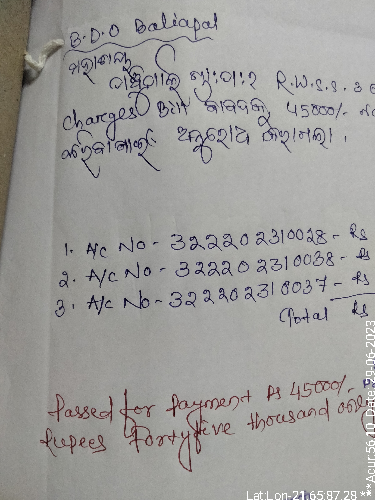 B.D.O Baliapal
ମହାଶୟଙ୍କୁ
R.W.S.S. ଓ
charges Bill ବାବଦକୁ 45000/-
କରିବା ପାଇଁ ଅନୁରୋଧ କରାଗଲା ।
1. A/c No - 322202310028 - Rs
2. A/c No - 322202310038 - Rs
3. A/c No - 322202310037 - Rs
Total Rs
Passed for Payment Rs 45000/-
Rupees Fortyfive thousand only
Lat:Lon-21.65:87.28 **Acur:56.0 Date:09-06-2023